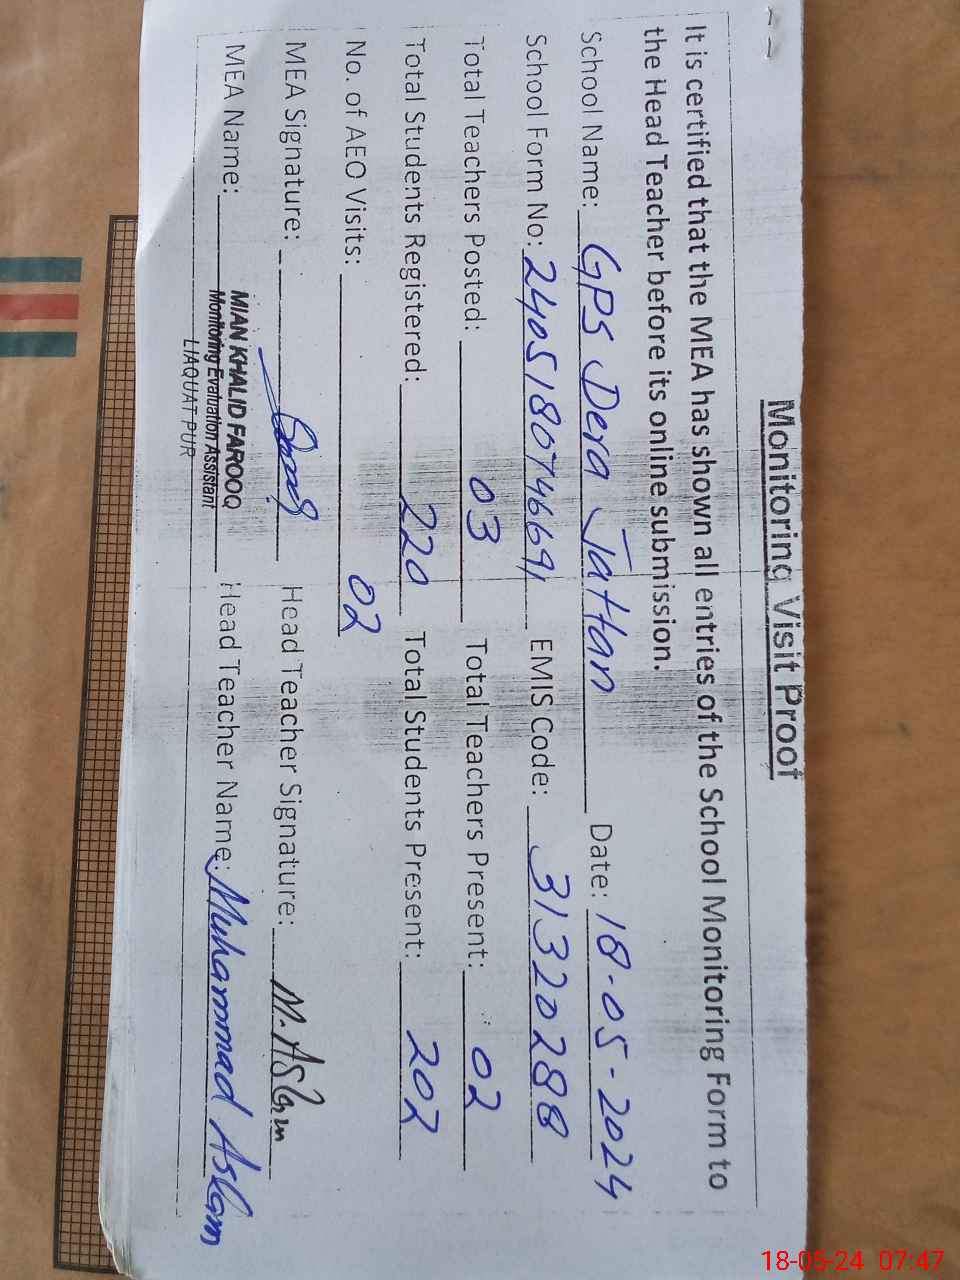 Monitoring Visit Proof
It is certified that the MEA has shown all entries of the School Monitoring Form to
the Head Teacher before its online submission.
School Name: GPS Dera Jattan Date: 18-05-2024
School Form No: 24051807466691 EMIS Code: 31320288
Total Teachers Posted: 03 Total Teachers Present: 02
Total Students Registered: 220 Total Students Present: 202
No. of AEO Visits: 02
MEA Signature: Head Teacher Signature: M. Aslam
MEA Name: MIAN KHALID FAROOQ Head Teacher Name: Muhammad Aslam
Monitoring Evaluation Assistant
LIAQUAT PUR
18-05-24 07:47